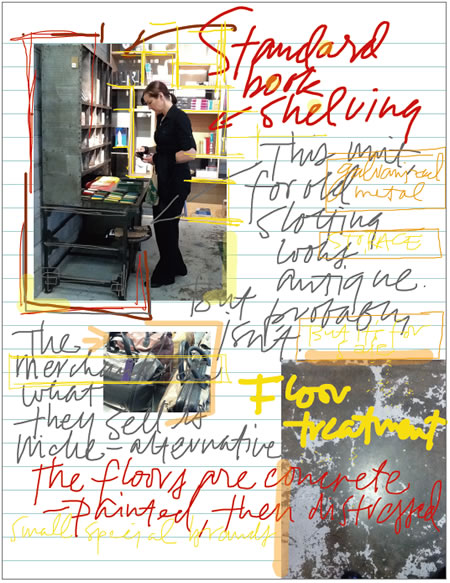 Standard
book
shelving
This unit
for old
slotting
looks
antique.
But probably
isn't
galvanized
metal
STORAGE
But it for
sale!
The
merchan
what
they sell is
niche-alternative
Floor
treatment
The floors are concrete
-painted, then distressed
small special brands